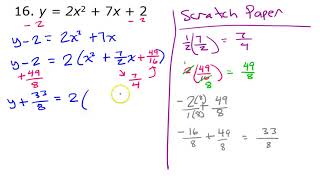 16. y = 2x² + 7x + 2
- 2 - 2
y - 2 = 2x² + 7x
y - 2 = 2(x² + 7/2 x + 49/16)
+ 49/8 7/4 + 49/8
y + 33/8 = 2(
Scratch Paper
1/2 (7/2) = 7/4
2(49/16) = 49/8
-2(8)/1(8) + 49/8
-16/8 + 49/8 = 33/8